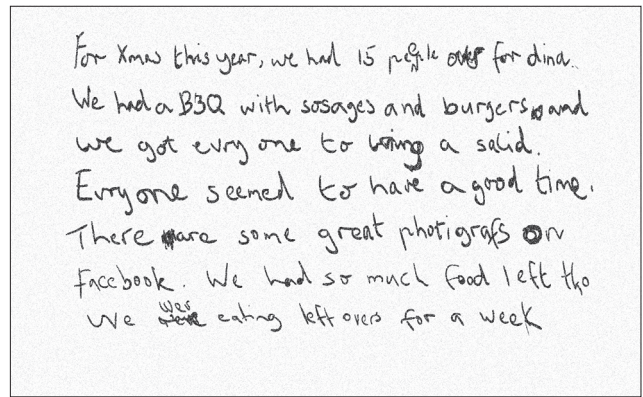 For Xmas this year, we had 15 people over for dina..
We had a BBQ with sosages and burgers and
we got evry one to bring a salid.
Evryone seemed to have a good time.
There are some great photigrafs on
Facebook. We had so much food left tho
We wer eating left overs for a week